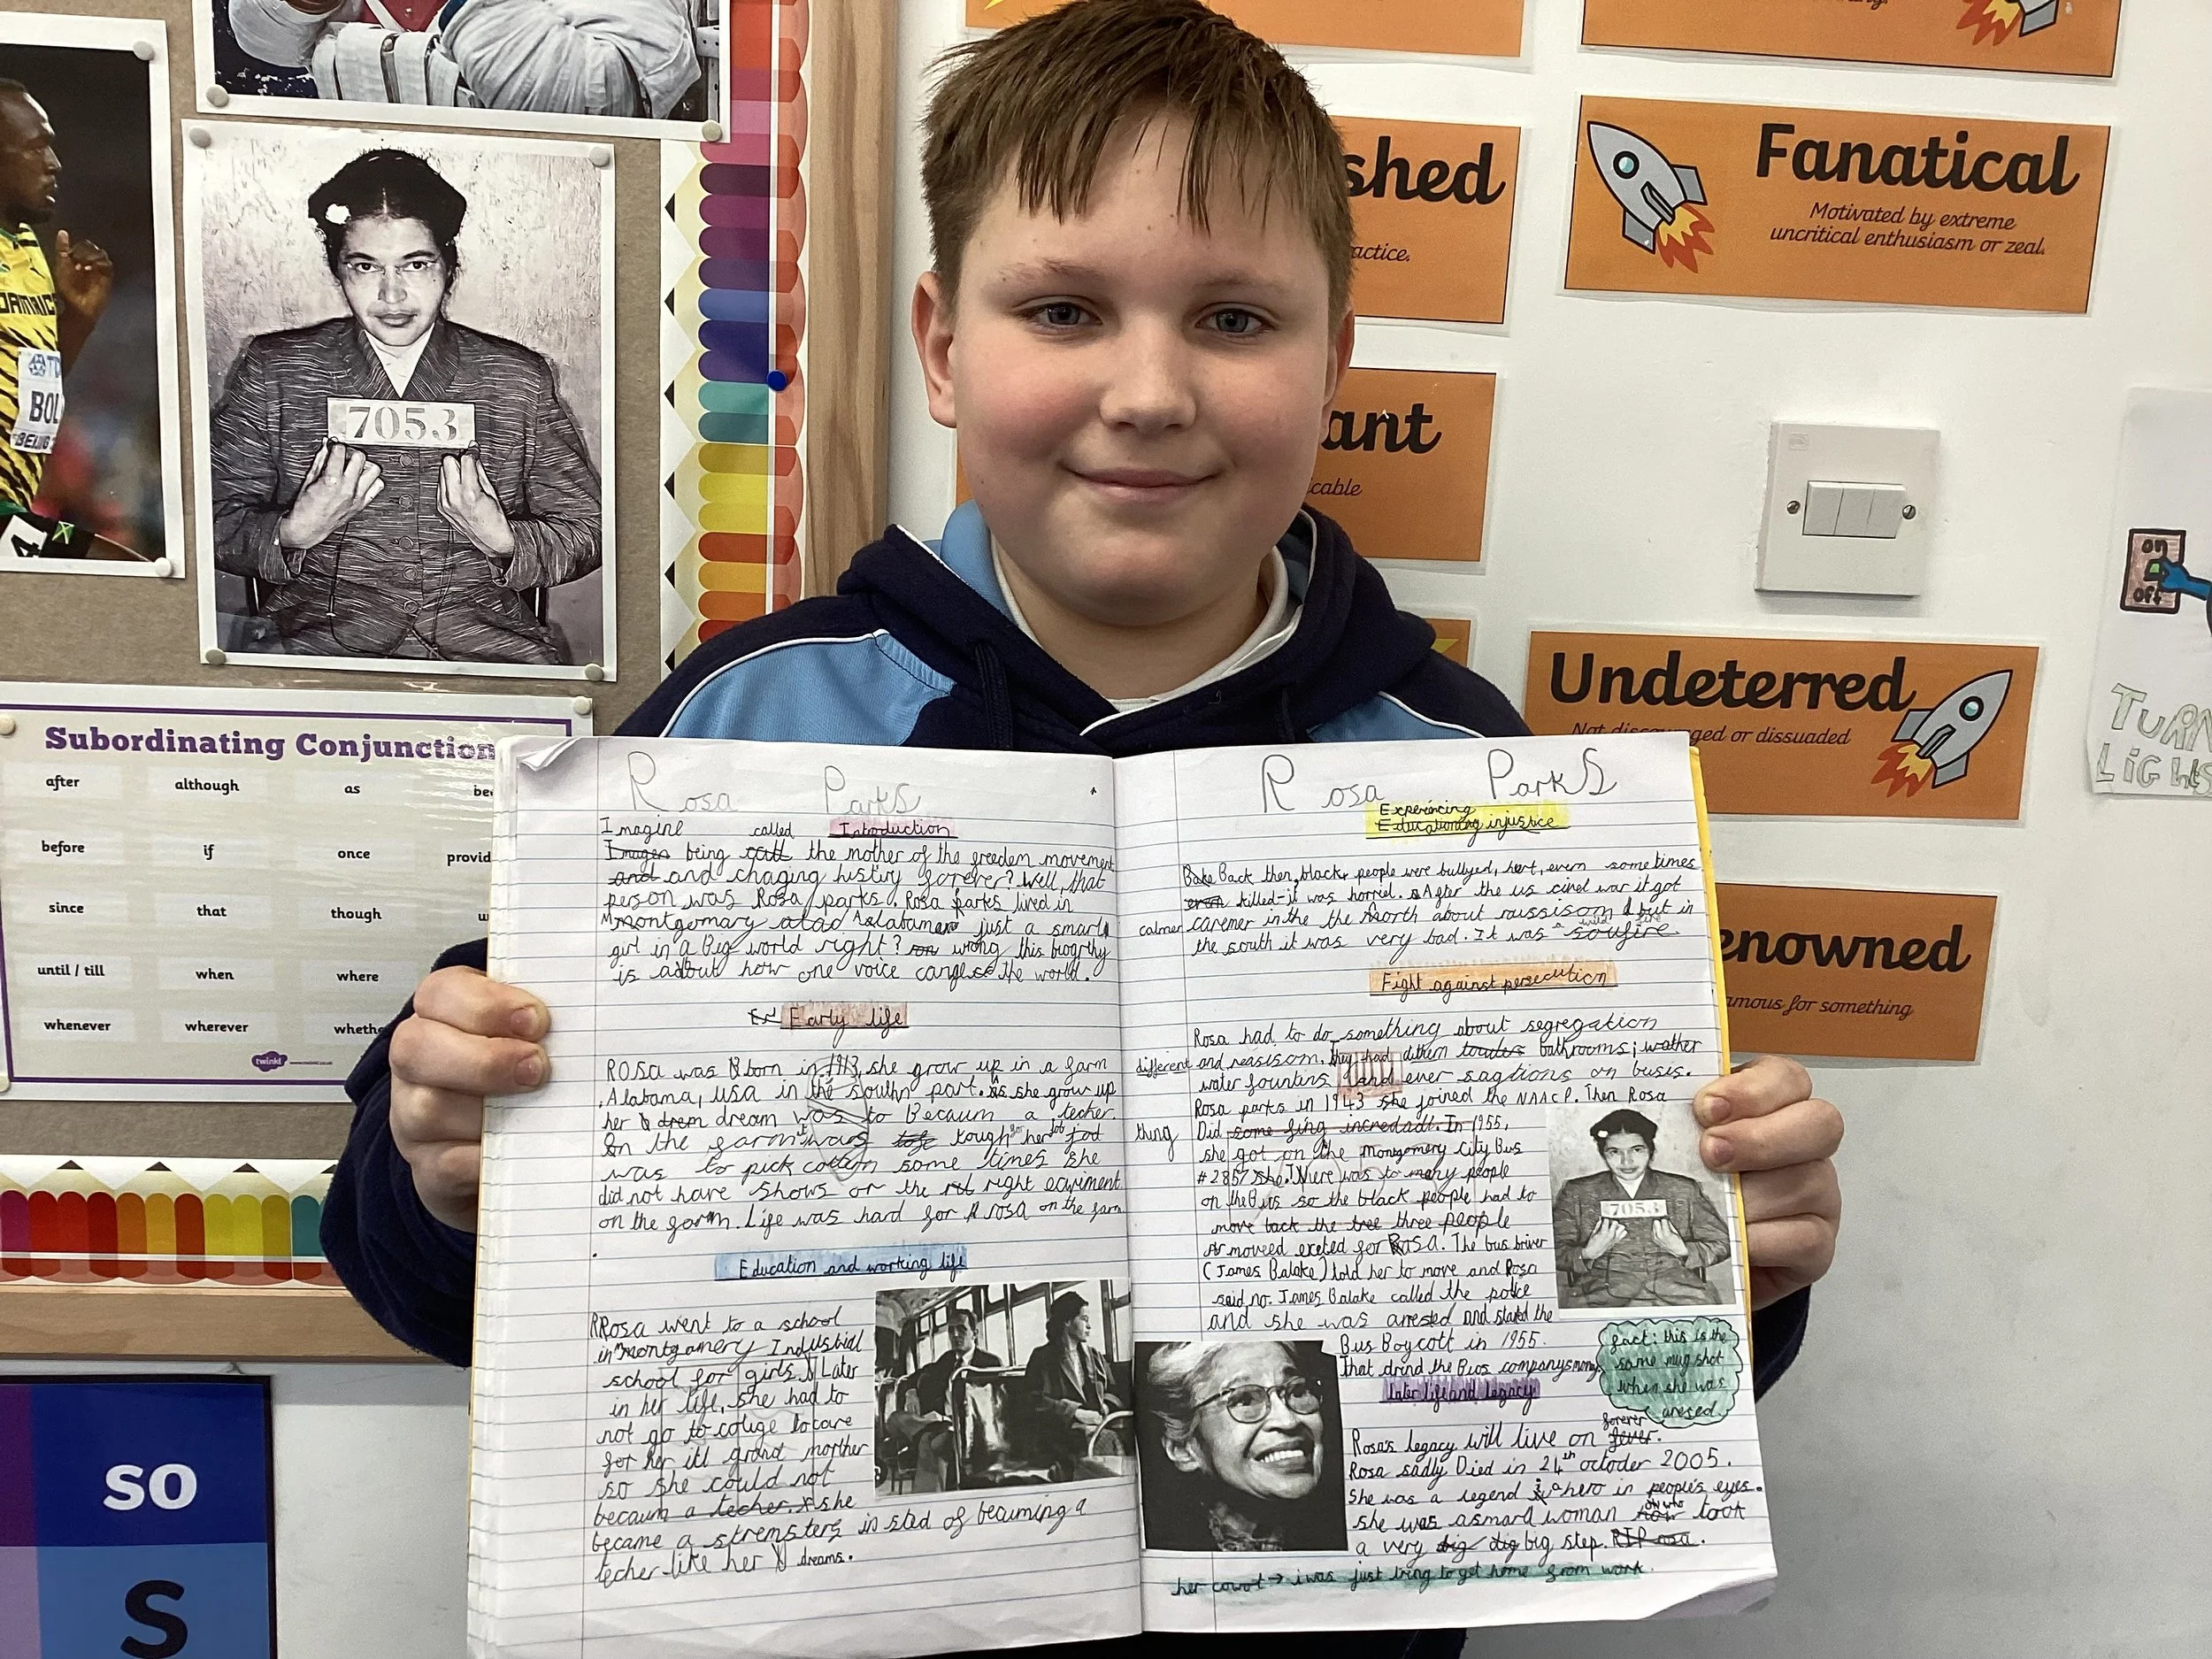 JAMAICA
BOL
BEIJING
7053
Subordinating Conjunction
after
although
as
before
if
once
provid
since
that
though
until / till
when
where
whenever
wherever
wheth
twinkl
so
S
shed
actice.
Fanatical
Motivated by extreme
uncritical enthusiasm or zeal.
ant
icable
Undeterred
Not discouraged or dissuaded
enowned
amous for something
on
off
TURN
LiGHtS
Rosa Parks
Introduction
Imagine called
Imagen being call the mother of the greedem movement
and and chaging histiry forever? Well, that
person was Rosa parks. Rosa parks lived in
montgomary Alabama just a smart
girl in a big world right? wrong this biogrthy
is about how one voice the world.
Early life
Rosa was born in 1913, she grow up in a farm
Alabama, USA in the southn part. As she grow up
her drem dream was to Becaum a techer.
On the farm it was tough for her job
was to pick cottem some times she
did not have shows or the right ecwiment
on the farm. Life was hard for rosa on the farm
Education and working life
Rosa went to a school
in montgomery Industrial
school for girls. Later
in her life, she had to
not go to collige to care
for her ill grand morther
so she could not
becaum a techer. she
became a stremsters in sted of becuming a
techer like her dreams.
Rosa Parks
Experincing
Educationing injustice
Bake Back then, black people were bullyed, hert, evern some times
even killed-it was horriel. After the us civel war it got
calmer caremer in the the North about raissisom but in
the south it was very bad. It was wild fire soufire.
Fight against persecution
Rosa had to do something about segregation
different and reasisom. they had bathrooms; wather
water fountins and ever sagtions on busis.
Rosa parks in 1943 she joined the NAACP. Then Rosa
thing Did some fing incredabl. In 1955,
she got on the Montgomery City Bus
#2857 she. There was to many people
on the Bus so the black people had to
move back the tree three people
moveed exeted for Rosa. The bus briver
(James Balake) told her to move and Rosa
said no. James Balake called the police
and she was arrested and stated the
Bus Boycott in 1955.
That drind the Buos companys money
7053
fact: this is the
same mug shot
when she was
aresed.
later life and legacy
Rosa's legacy will live on forever fever.
Rosa sadly Died in 24th octoder 2005.
She was a legend & a hero in people's eyes.
she was asmard woman who took
a very big dig big step. RIP rosa.
her cowot → i was just tring to get home from work.